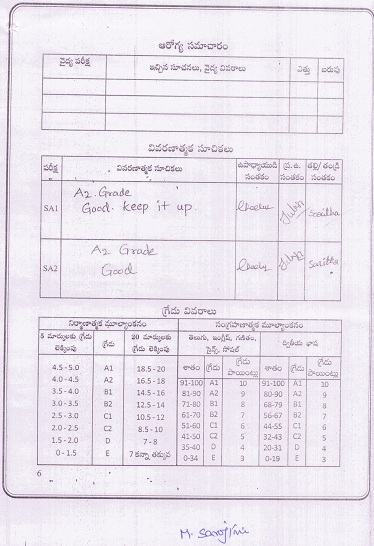 ఆరోగ్య సమాచారం
వైద్య పరీక్ష ఇచ్చిన సూచనలు, వైద్య వివరాలు ఎత్తు బరువు
వివరణాత్మక సూచికలు
పరీక్ష వివరణాత్మక సూచికలు ఉపాధ్యాయుడి సంతకం ప్ర.ఉ. సంతకం తల్లి/తండ్రి సంతకం
SA1 A2 Grade
Good. keep it up Saritha
SA2 A2 Grade
Good Saritha
గ్రేడు వివరాలు
నిర్మాణాత్మక మూల్యాంకనం సంగ్రహణాత్మక మూల్యాంకనం
5 మార్కులకు గ్రేడు లెక్కింపు గ్రేడు 20 మార్కులు గ్రేడు లెక్కింపు తెలుగు, ఇంగ్లీష్, గణితం, సైన్స్, సోషల్ ద్వితీయ భాష
శాతం గ్రేడు గ్రేడు పాయింట్లు శాతం గ్రేడు గ్రేడు పాయింట్లు
4.5 - 5.0 A1 18.5 - 20 91-100 A1 10 90-100 A1 10
4.0 - 4.5 A2 16.5 - 18 81-90 A2 9 80-90 A2 9
3.5 - 4.0 B1 14.5 - 16 71-80 B1 8 68-79 B1 8
3.0 - 3.5 B2 12.5 - 14 61-70 B2 7 56-67 B2 7
2.5 - 3.0 C1 10.5 - 12 51-60 C1 6 44-55 C1 6
2.0 - 2.5 C2 8.5 - 10 41-50 C2 5 32-43 C2 5
1.5 - 2.0 D 7 - 8 35-40 D 4 20-31 D 4
0 - 1.5 E 7 కన్నా తక్కువ 0-34 E 3 0-19 E 3
6
M. Sarojini